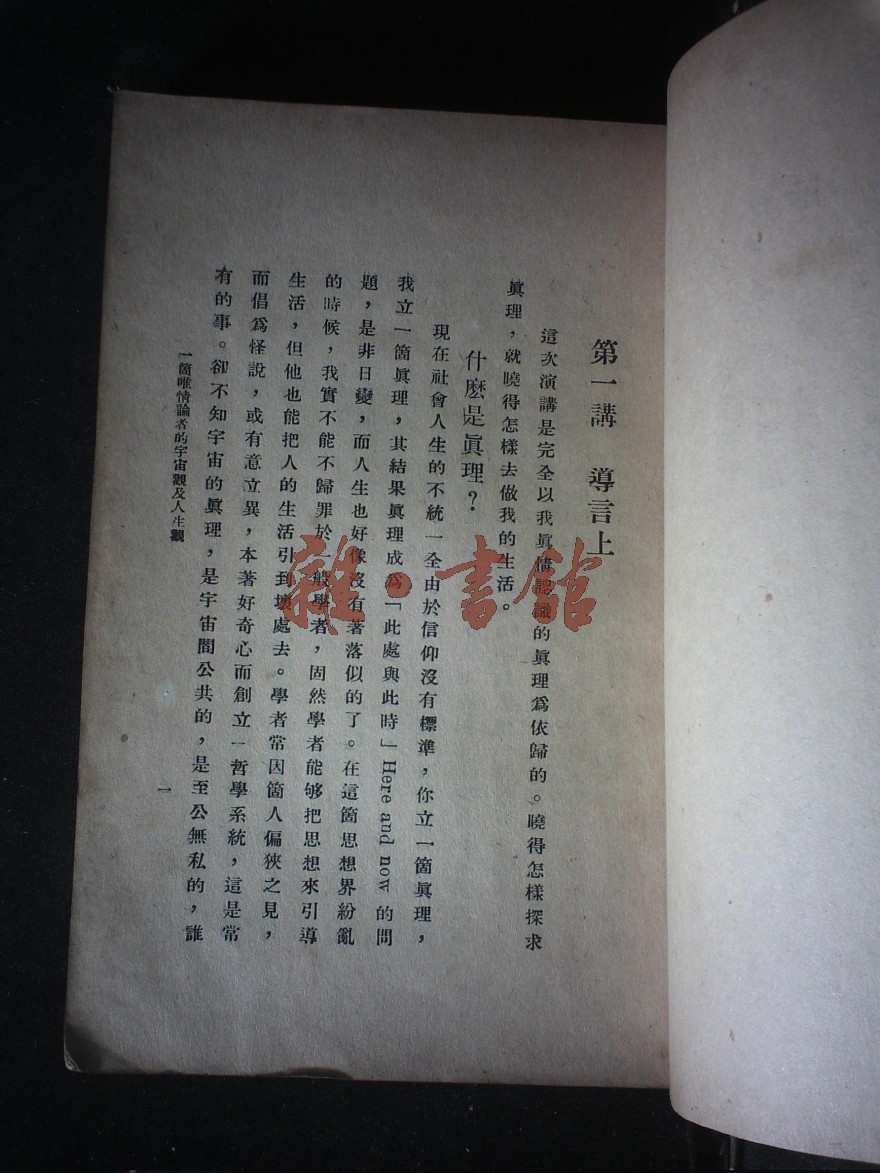 第一講　導言上
這次演講是完全以我眞情認識的眞理爲依歸的。曉得怎樣探求
眞理，就曉得怎樣去做我的生活。
什麽是眞理？
現在社會人生的不統一全由於信仰沒有標準，你立一箇眞理，
我立一箇眞理，其結果眞理成爲「此處與此時」Here and now 的問
題，是非日變，而人生也好像沒有著落似的了。在這箇思想界紛亂
的時候，我實不能不歸罪於一般學者，固然學者能够把思想來引導
生活，但他也能把人的生活引到壞處去。學者常因箇人偏狹之見，
而倡爲怪說，或有意立異，本著好奇心而創立一哲學系統，這是常
有的事。卻不知宇宙的眞理，是宇宙間公共的，是至公無私的，誰
一箇唯情論者的宇宙觀及人生觀
一
雜·書館